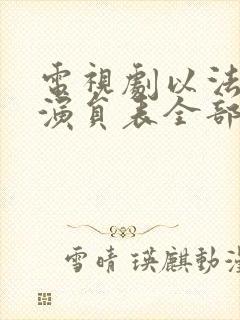 電視劇以法
演員表全部
雪晴瑛麒動漫